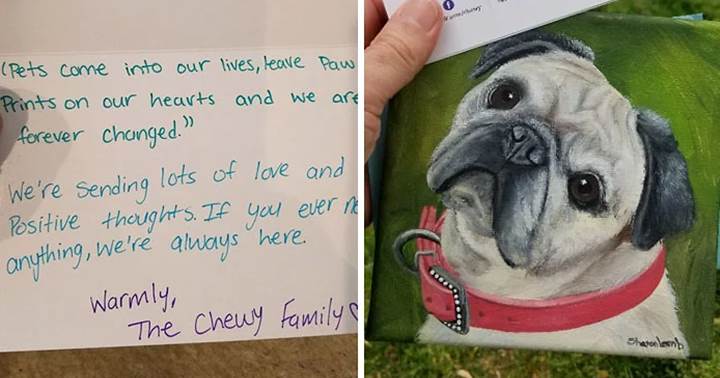 (Pets come into our lives, leave Paw
Prints on our hearts and we are
forever changed."
We're Sending lots of love and
Positive thoughts. If you ever
anything, we're always here.
Warmly,
The Chewy Family